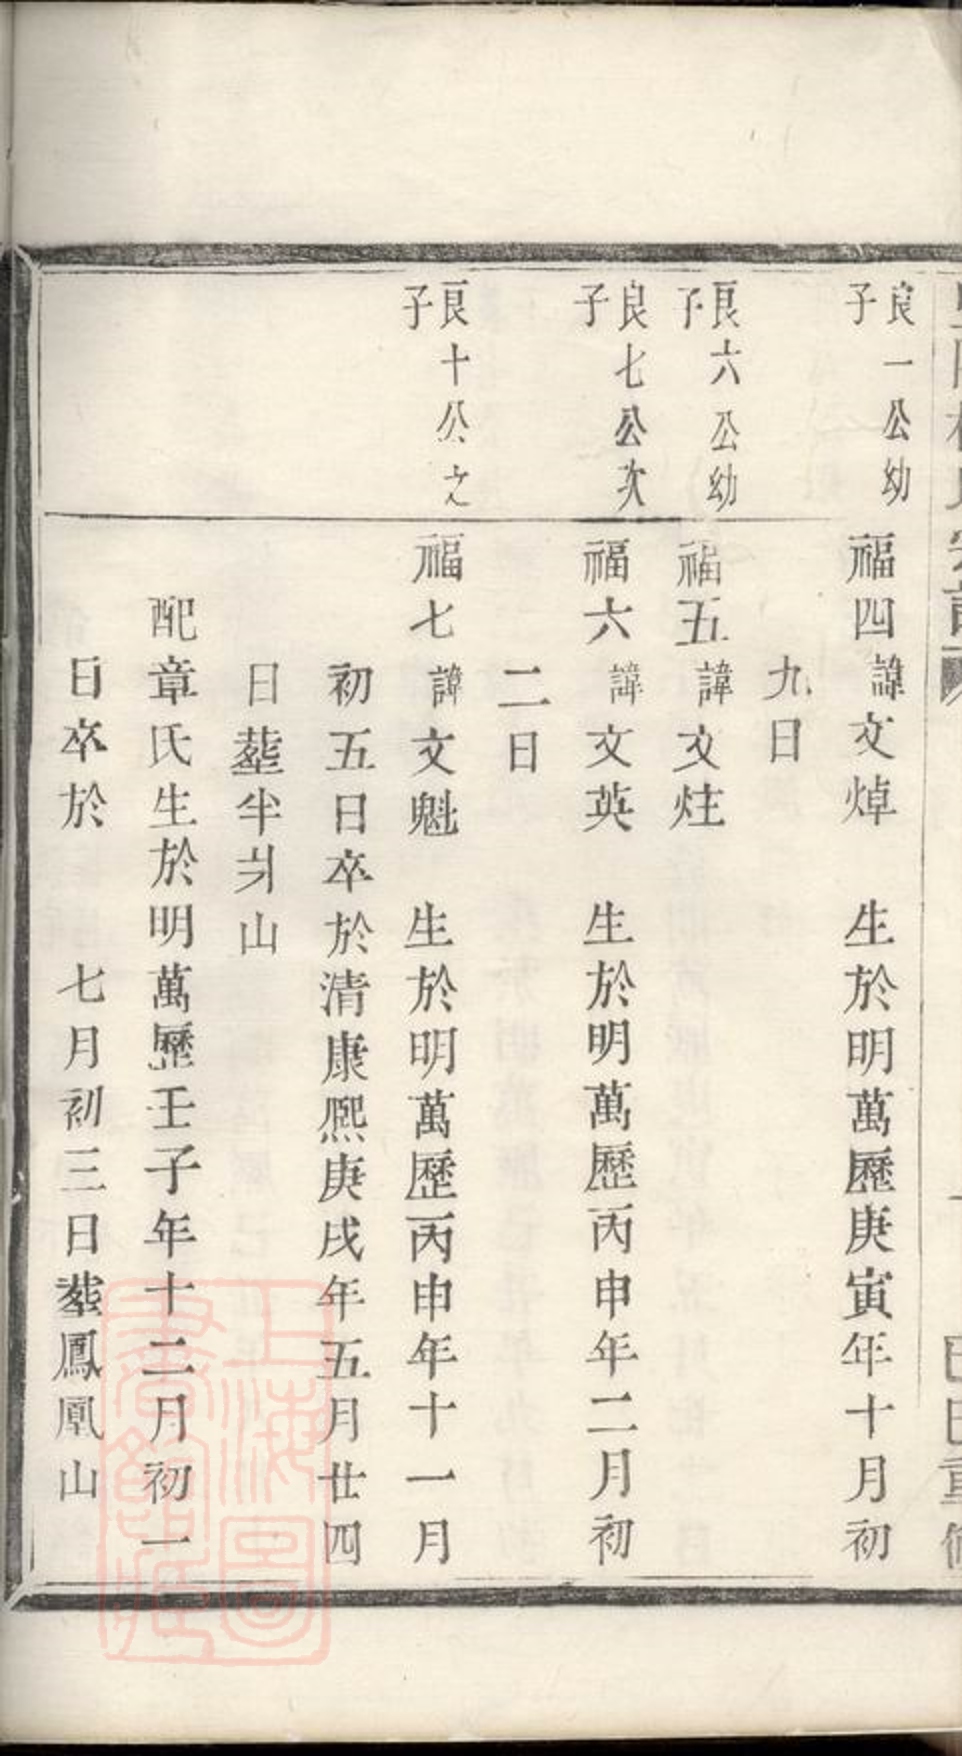 己巳重修
良一公幼
子
福四諱文焯 生於明萬歷庚寅年十月初
九日
良六公幼
子
福五諱文炷
良七公次
子
福六諱文英 生於明萬歷丙申年二月初
二日
良十公之
子
福七諱文魁 生於明萬歷丙申年十一月
初五日卒於清康熙庚戌年五月廿四
日塟半爿山
配章氏生於明萬歷壬子年十二月初一
日卒於 七月初三日塟鳳凰山
上海圖
書館藏